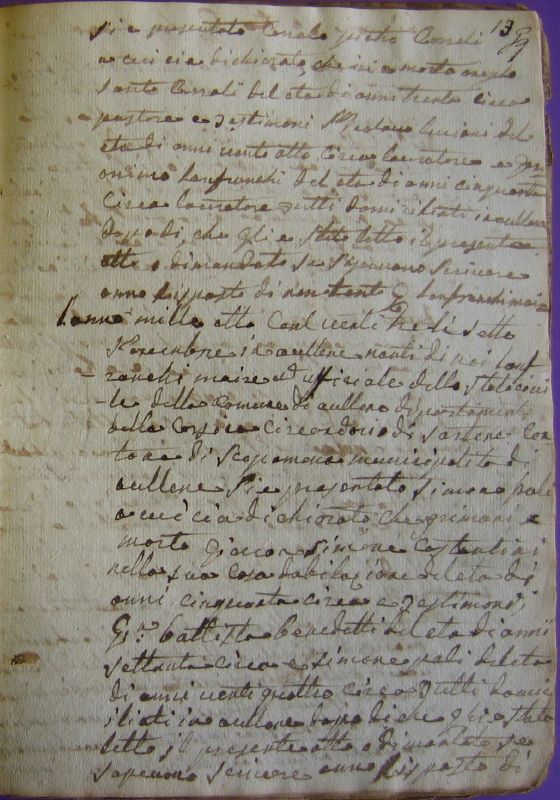 13
si e presentato Pietro
a cui cia dichiarato che ieri e morto
Santo del eta di anni trenta circa
pastore e Testimoni luciani del
eta di anni vinti otto circa lavoratore e
onimo lanfranchi del eta di anni cinquanta
circa lavoratore Tutti domiciliati in aullene
dopo di che gli e stato letto il presente
atto e dimandato se sapevano scrivere
anno risposto di non lanfranchi maire
l'anno mille otto cent venti tre li sette
Novembre in aullene nanti di noi lanf
ranchi maire ed ufficiale dello stato civi
le della comune di aullene dipartimento
della Corsica circondario di sartene can
tone di scopamene municipalità di
aullene si e presentato simone pali
a cui cia dichiarato che e
morto giacon simone costantini
nella sua casa dabitazione del eta di
anni cinquanta circa e Testimoni
Gio: battista benedetti del eta di anni
settanta circa e simone pali del eta
di anni venti quattro circa Tutti domic
iliati in aullene dopo di che gli e stato
letto il presente atto e dimandato se
sapevano scrivere anno risposto di